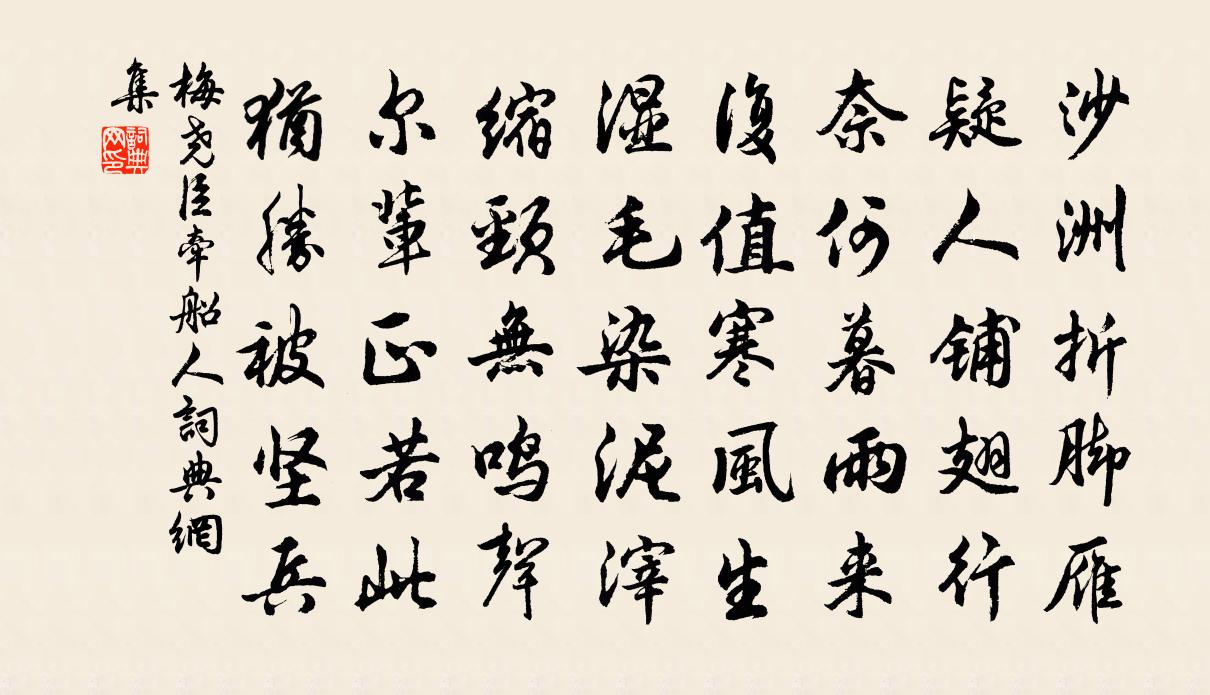 沙洲折脚雁
疑人铺翅行
奈何暮雨来
復值寒風生
湿毛染泥滓
缩頸無鸣聲
尔輩正若此
猶勝被坚兵
梅尧臣牵船人詞典網
集
詞典網印